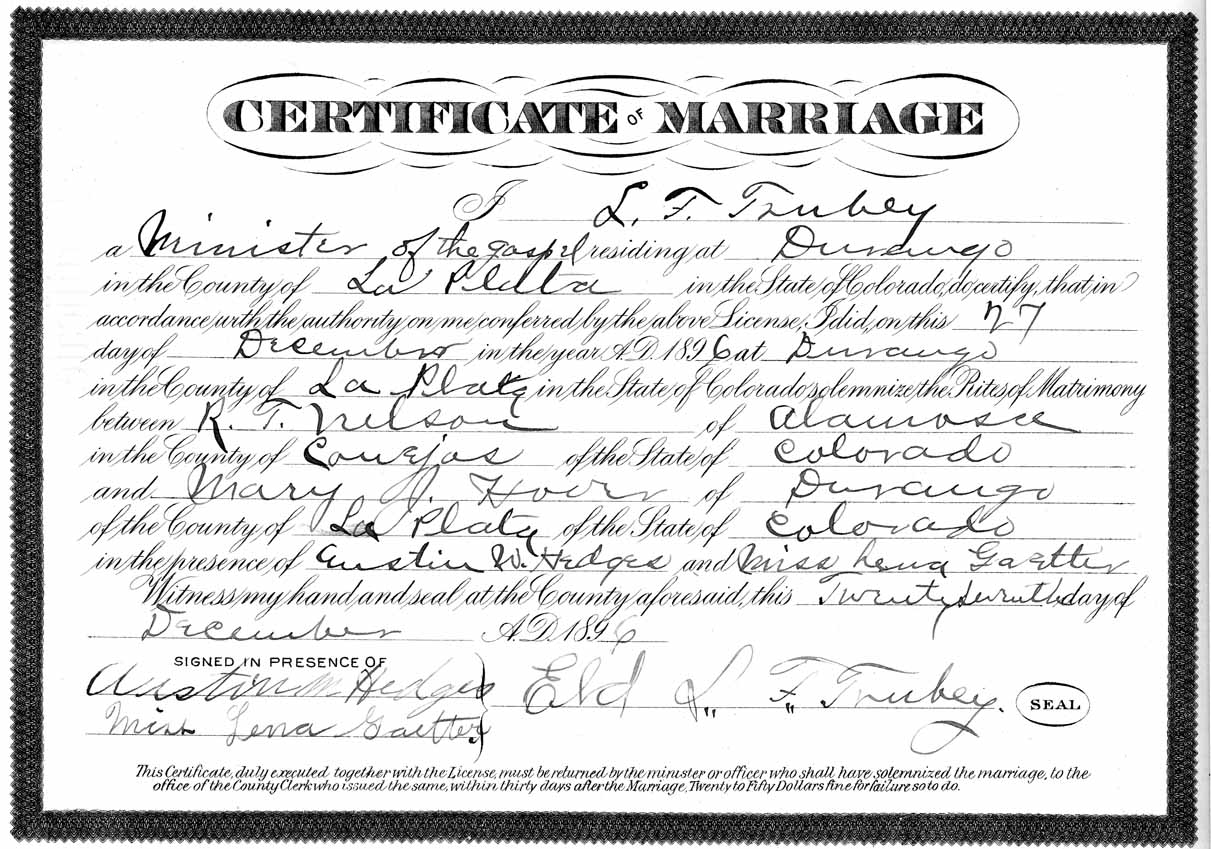 CERTIFICATE OF MARRIAGE
I L. F. Trubey
a Minister of the gospel residing at Durango
in the County of La Plata in the State of Colorado, do certify, that in
accordance with the authority on me conferred by the above License, I did, on this 27
day of December in the year A.D. 1896 at Durango
in the County of La Plata in the State of Colorado solemnize the Rites of Matrimony
between R. T. Nelson of Alamosa
in the County of Conejos of the State of Colorado
and Mary J. of Durango
of the County of La Plata of the State of Colorado
in the presence of Austin W. Hedges and Miss Lena Gaetter
Witness my hand and seal at the County aforesaid, this Twenty Seventh day of
December A.D. 1896
SIGNED IN PRESENCE OF
Austin W Hedges
Miss Lena Gaetter
Eld L. F. Trubey.
SEAL
This Certificate, duly executed together with the License, must be returned by the minister or officer who shall have solemnized the marriage, to the
office of the County Clerk who issued the same, within thirty days after the Marriage, Twenty to Fifty Dollars fine for failure so to do.